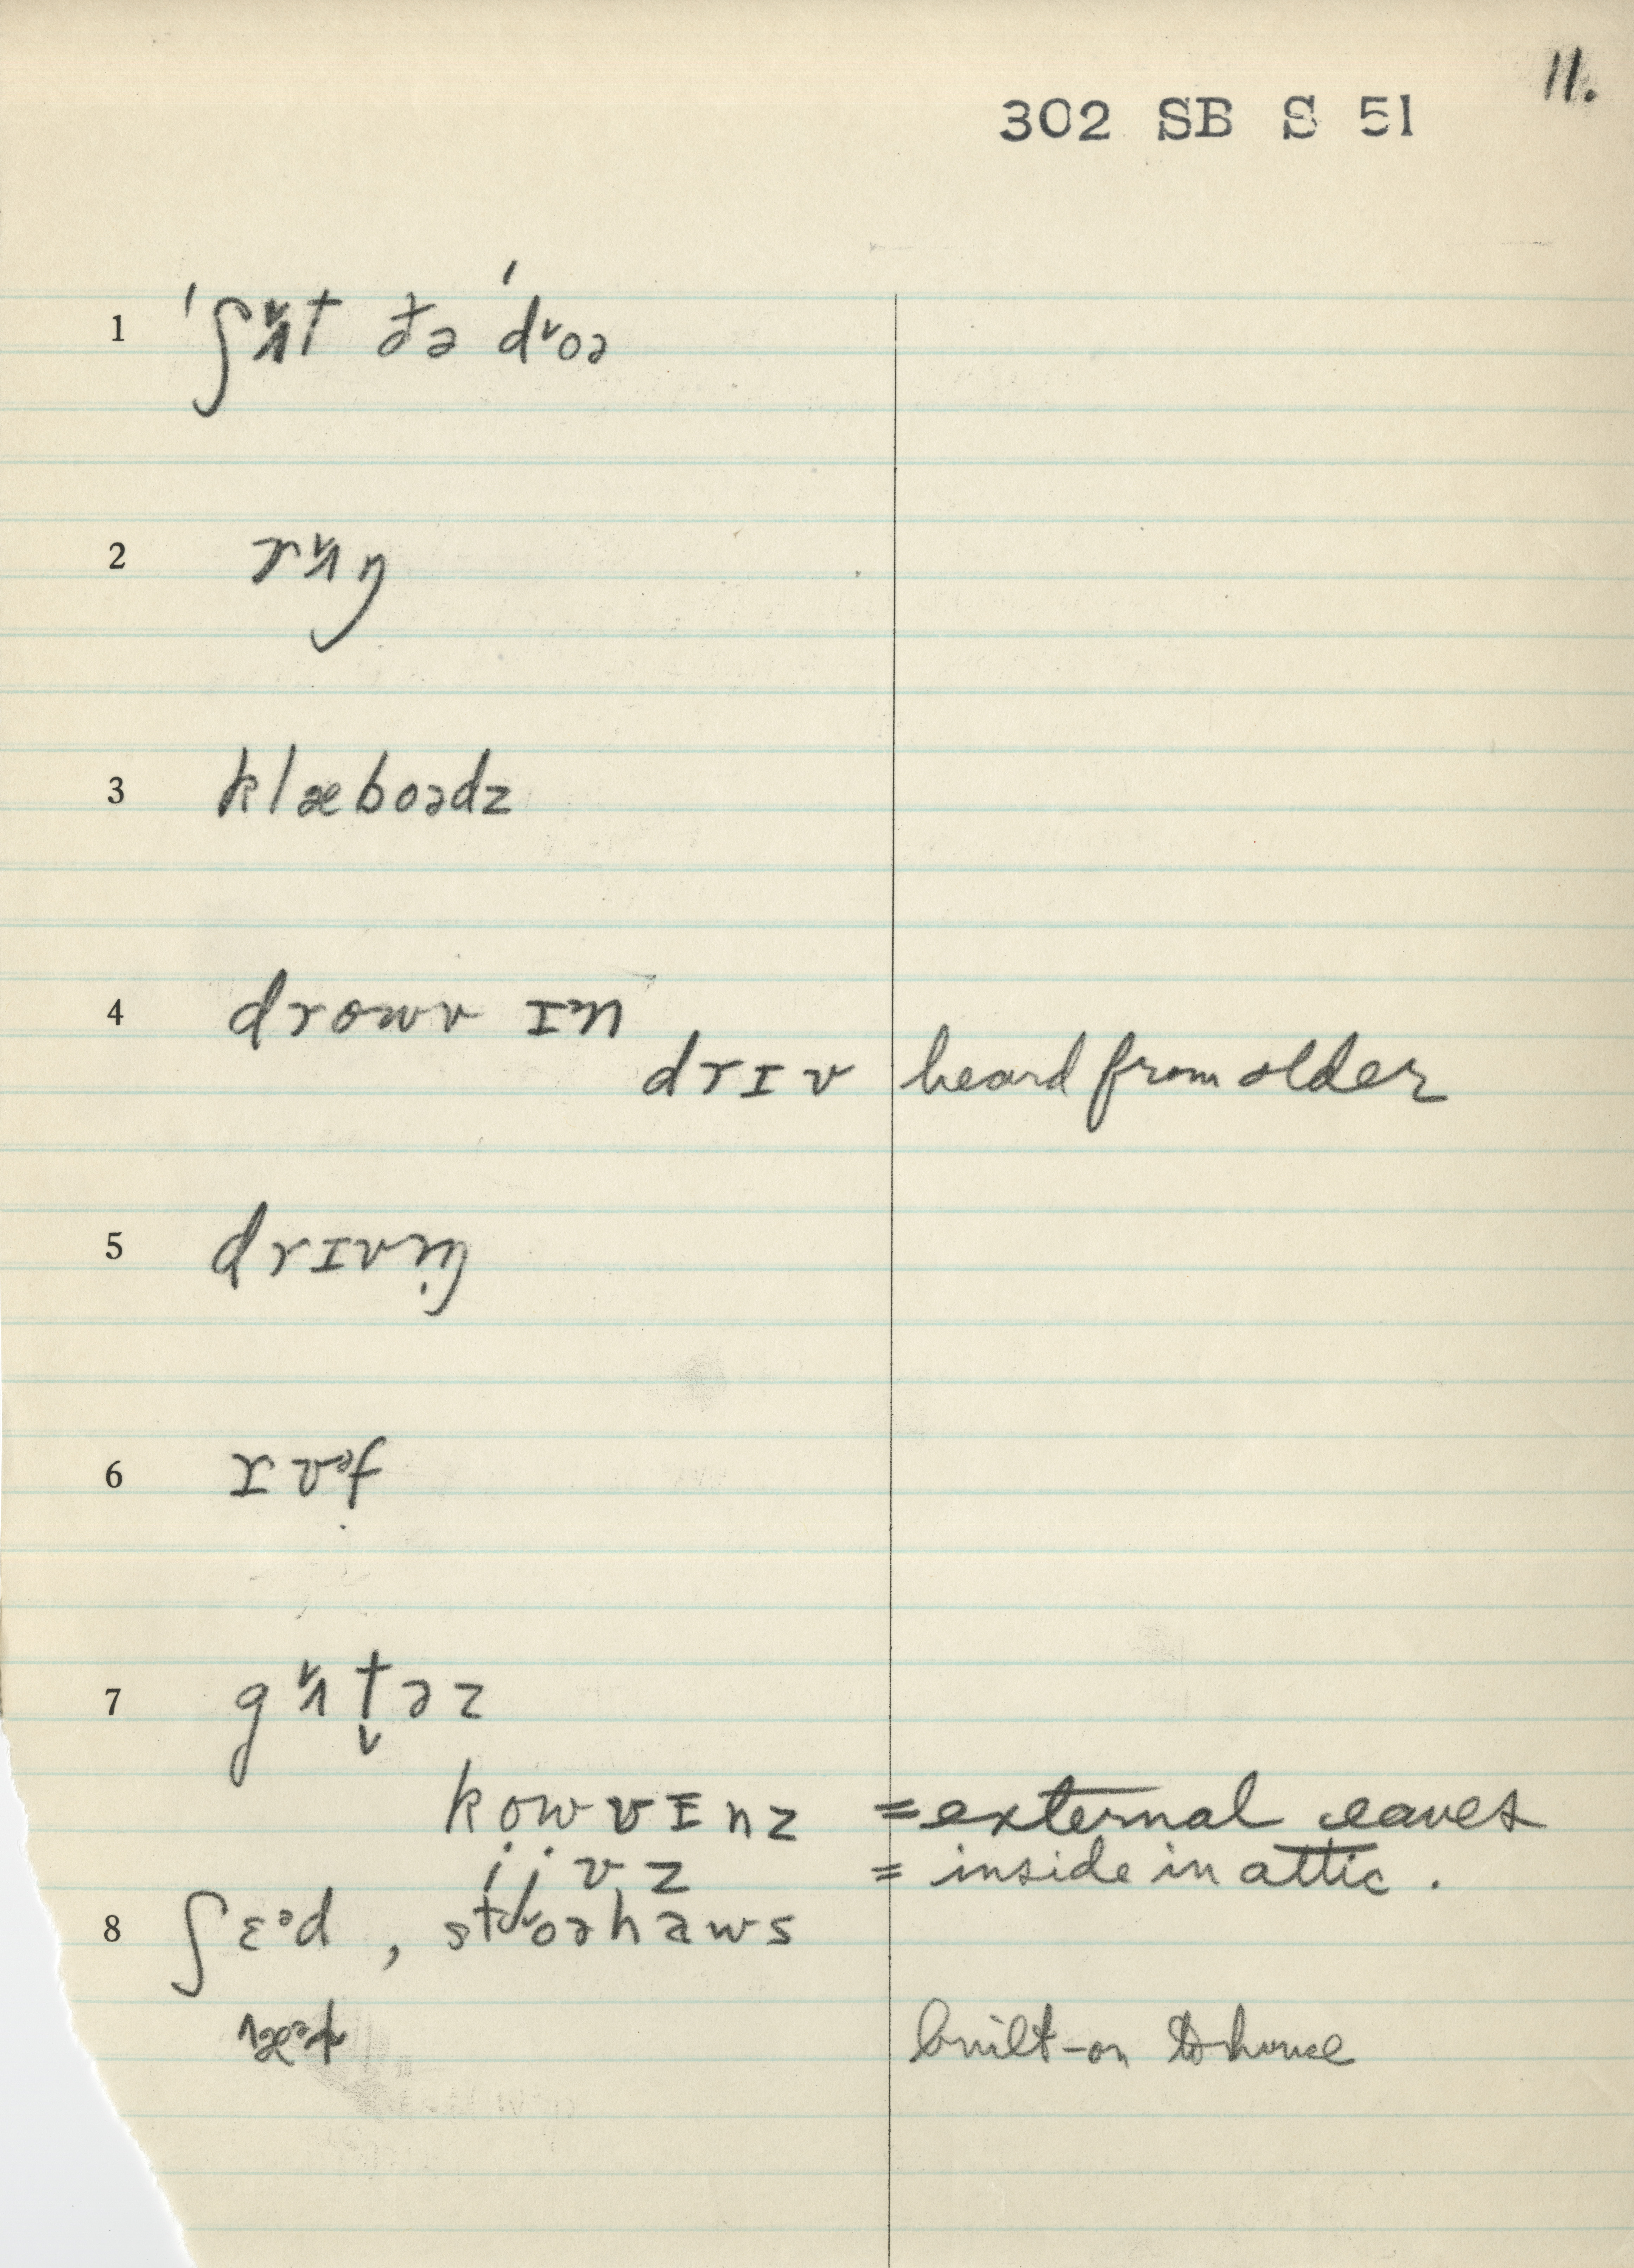 11.
302 SB S 51
1 ˈʃʌ˅t ðə ˈdo˅ə
2 rʌ˅ŋ
3 klæboədz
4 drowv ɪn
drɪv heard from older
5 drɪvɪŋ
6 rʊf
7 gʌ˅t̬əz
kowvɪnz = external eaves
ijvz = inside in attic.
8 ʃɛᵊd , stoəhaws
built-on to house